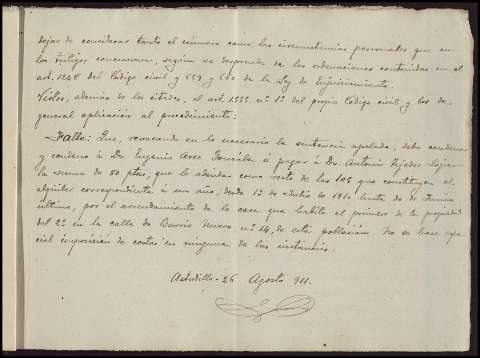 dejar de considerar tanto el número como las circunstancias personales que en
los testigos concurran, según se desprende de las ordenaciones contenidas en el
art. 1248 del Código civil y 659 y 660 de la Ley de Enjuiciamiento.
Vistos, además de los citados, el art. 1555 nº 1º del propio Código civil y los de
general aplicación al procedimiento;
Fallo: Que, revocando en lo necesario la sentencia apelada, debo condenar
y condeno á Dn. Eugenio Arce González á pagar á Dn. Antonio Tejedor
la suma de 80 ptas, que le adeudan como resto de las 105 que constituyen el
alquiler correspondiente á un año, desde 1º de Julio de 1910 hasta 30 de Junio
último, por el arrendamiento de la casa que habita el primero de la propiedad
del 2º en la calle de Barrio Nuevo nº 24, de esta población. No se hace
especial imposición de costas en ninguna de las instancias.
Astudillo - 26 Agosto 911.